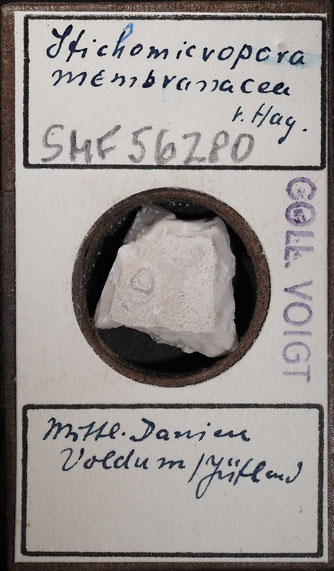 Stichomicropora
membranacea
v. Hag.
SMF 56280
COLL. VOIGT
Mittl. Danien
Voldum/Jütland